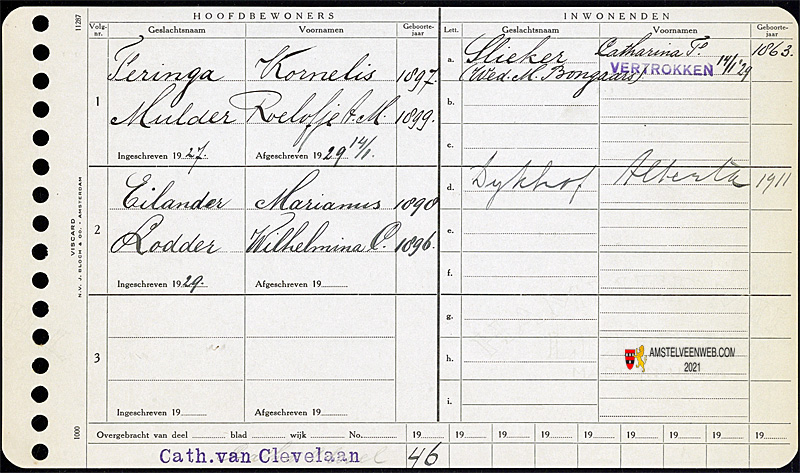 HOOFDBEWONERS
INWONENDEN
Volg-nr. Geslachtsnaam Voornamen Geboorte-jaar
Lett. Geslachtsnaam Voornamen Geboorte-jaar
1
Feringa Kornelis 1897.
Mulder Roelofje A. M. 1899.
Ingeschreven 1927. Afgeschreven 1929 14/1.
2
Eilander Marianus 1898
Lodder Wilhelmina C. 1896.
Ingeschreven 1929. Afgeschreven 19
3
Ingeschreven 19 Afgeschreven 19
a. Slieker Catharina P. 1863.
(Wed. M. Bongaars) VERTROKKEN 14/1 '29
b.
c.
d. Dykhof Alberta 1911
e.
f.
g.
h.
i.
AMSTELVEENWEB.COM
2021
Overgebracht van deel blad wijk No. 19 19 19 19 19 19 19 19 19 19
Cath.van Clevelaan 46
11287
VISCARD
N.V. J. BLOCH & CO. - AMSTERDAM
1000